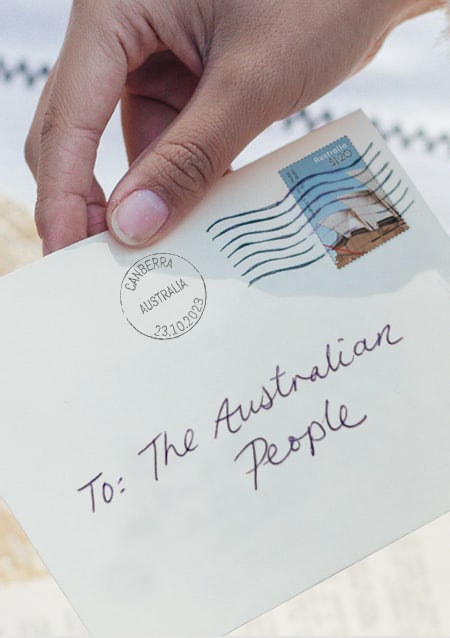 Australia
$1.20
CANBERRA
AUSTRALIA
23.10.2023
To: The Australian
People